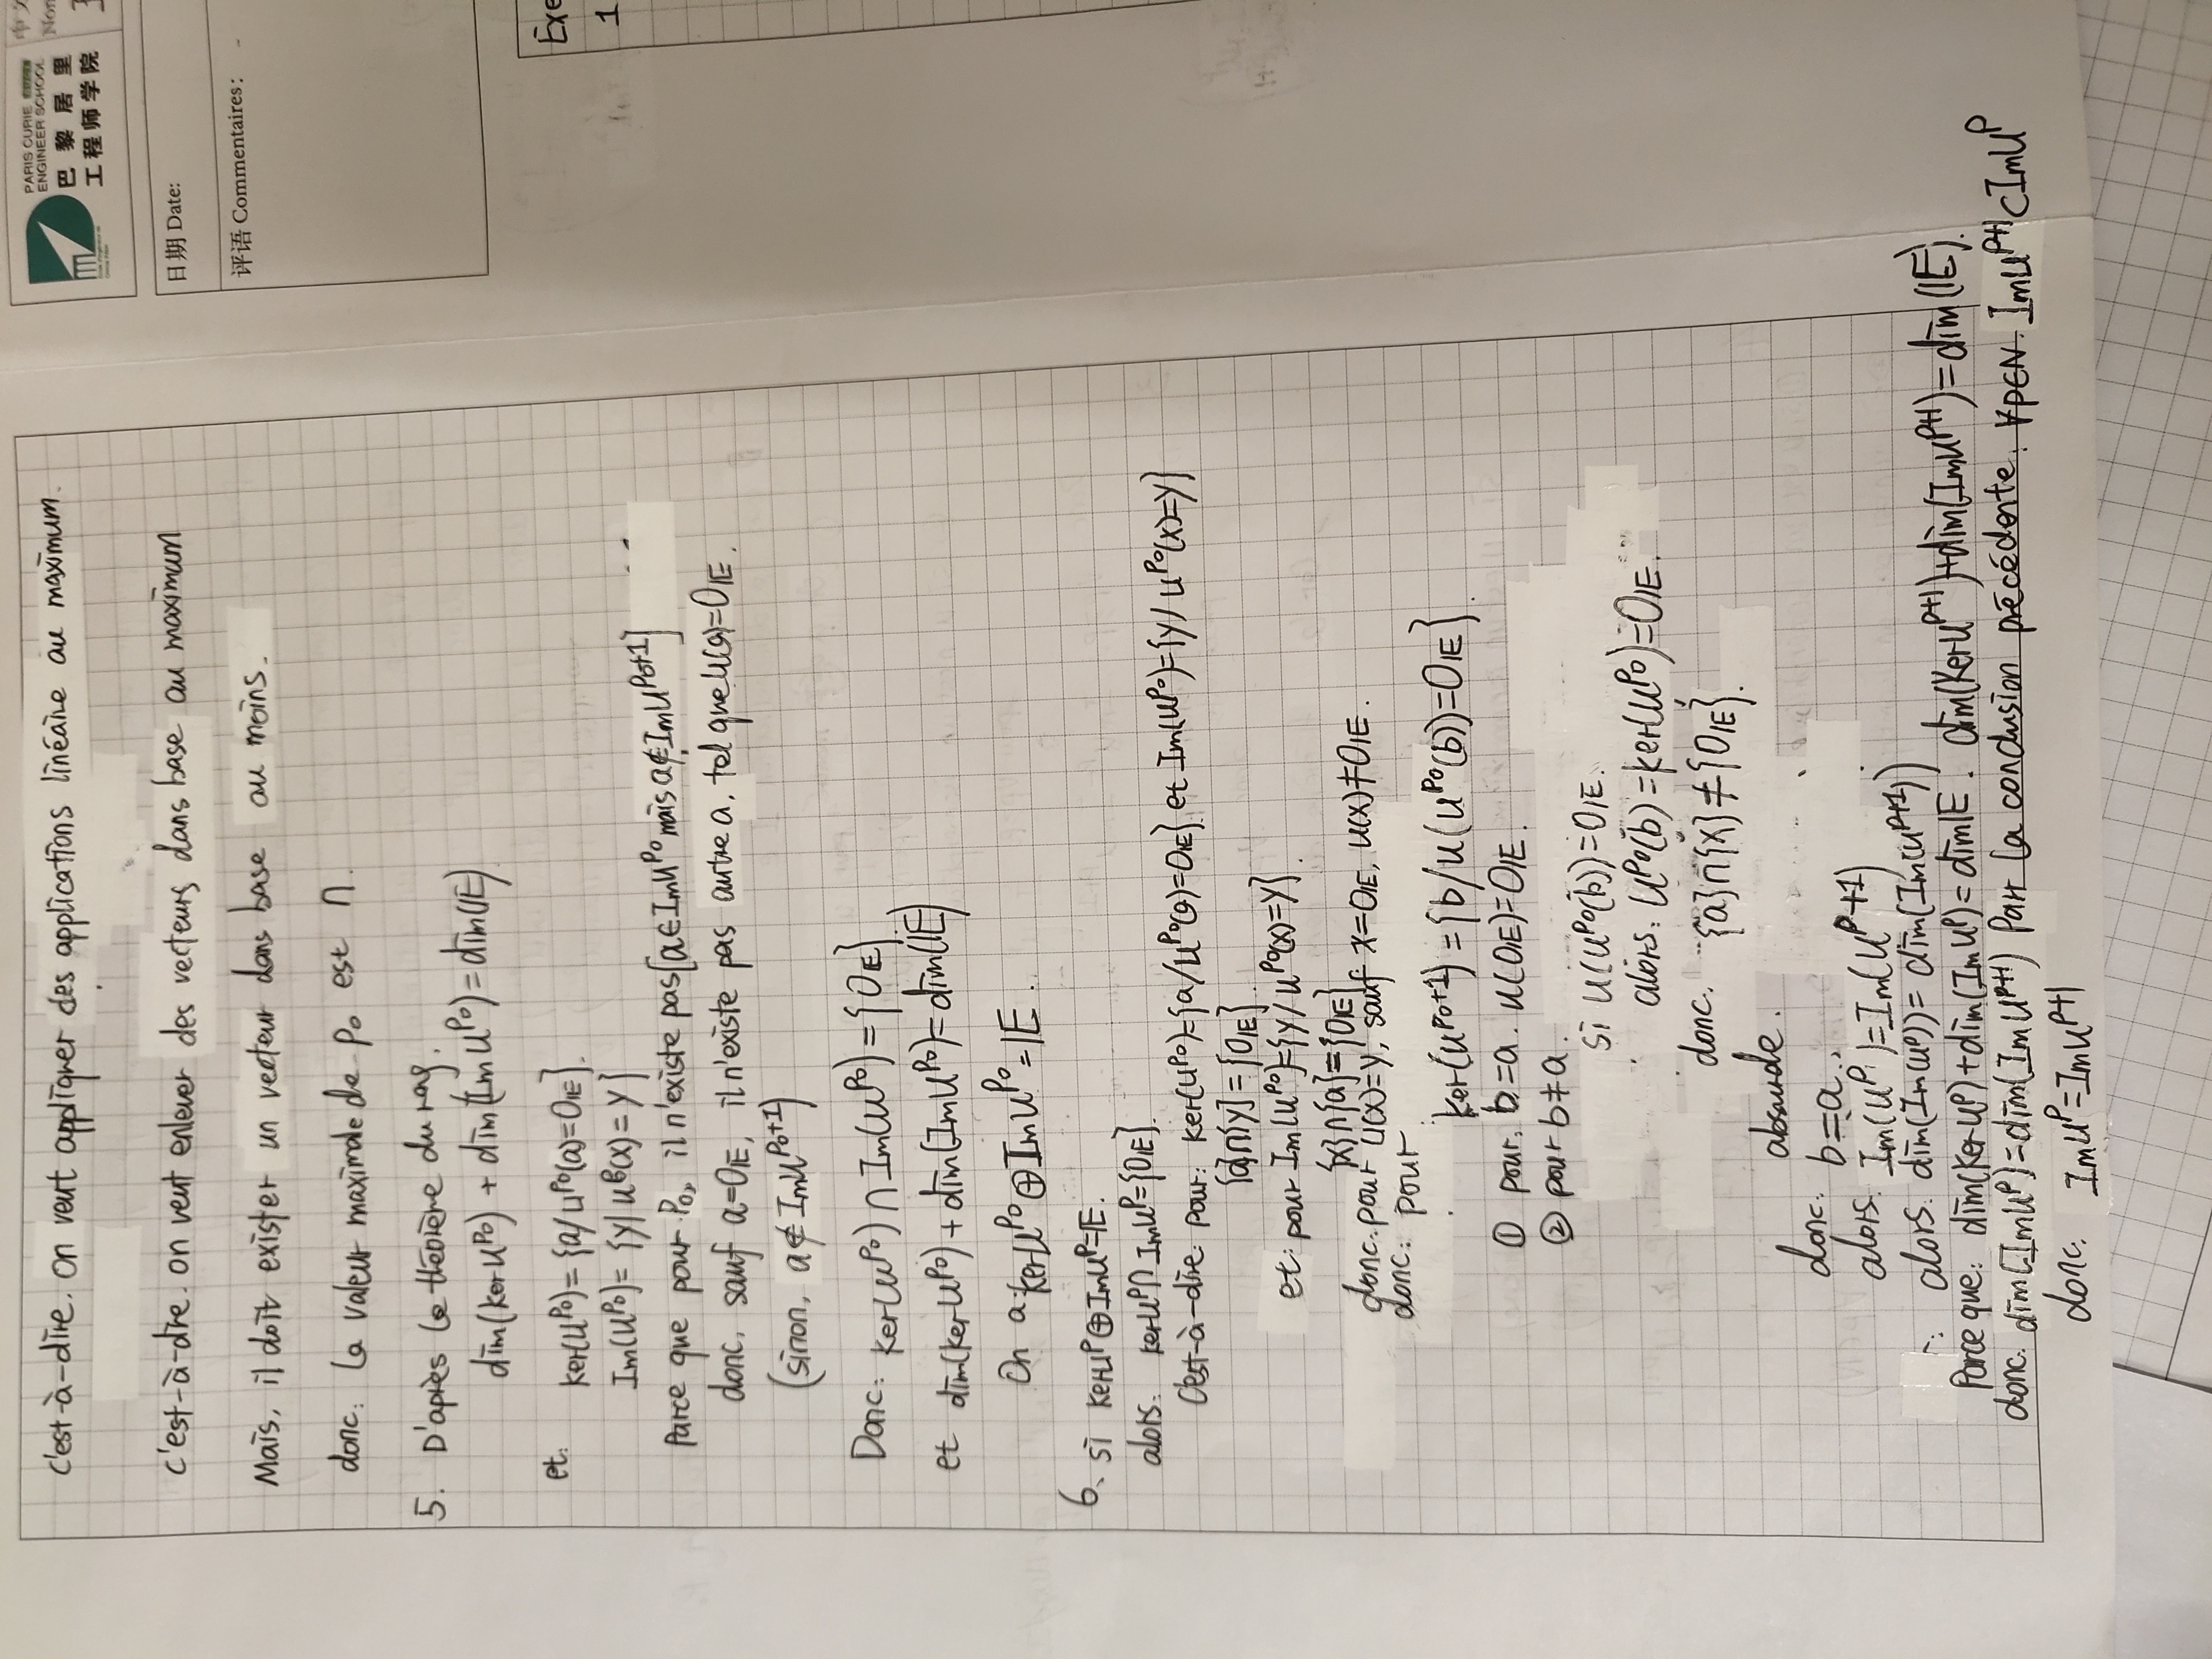 c'est-à-dire. on veut appliquer des applications linéaire au maximum.
c'est-à-dire. on veut enlever des vecteurs dans base au maximum
Mais, il doit exister un vecteur dans base au moins.
donc: la valeur maximale de p₀ est n.
5. D'après le théorème du rag.
dim(ker u^p₀) + dim(Im u^p₀) = dim(IE)
et: ker(u^p₀) = {a/u^p₀(a)=0_IE}.
Im(u^p₀) = {y| u^p₀(x) = y}
Parce que pour p₀, il n'existe pas [a∈Im u^p₀ mais a∉Im u^p₀+1]
donc, sauf a=0_IE, il n'existe pas autre a, tel que u(a)=0_IE.
(sinon, a∉Im u^p₀+1)
Donc: ker(u^p₀) ∩ Im(u^p₀) = {0_E}.
et dim(ker u^p₀) + dim(Im u^p₀) = dim(IE)
On a: ker u^p₀ ⊕ Im u^p₀ = IE.
6. si ker u^p ⊕ Im u^p = IE.
alors. ker u^p ∩ Im u^p = {0_IE}.
C'est-à-dire pour: ker(u^p₀)={a/u^p₀(a)=0_IE} et Im(u^p₀)={y/ u^p₀(x)=y}
{a}∩{y} = {0_IE}.
et: pour Im(u^p₀)={y/ u^p₀(x)=y}.
{x}∩{a}={0_IE}.
donc. pour u(x)=y, sauf x=0_IE, u(x)≠0_IE.
donc: pour
ker(u^p₀+1) = {b/u(u^p₀(b))=0_IE}.
① pour, b=a. u(0_IE)=0_IE.
② pour b≠a.
si u(u^p₀(b))=0_IE.
alors. u^p₀(b) = ker(u^p₀)=0_IE.
donc. {a}∩{x} ≠ {0_IE}.
absurde.
donc: b=a.
alors. Im(u^p)=Im(u^p+1)
alors. dim(Im(u^p)) = dim(Im(u^p+1))
Parce que: dim(ker u^p)+dim(Im u^p) = dim IE. dim(Ker u^p+1)+dim(Im u^p+1) = dim(IE).
donc. dim(Im u^p)=dim(Im u^p+1) Parr la conclusion précédente. ∀p∈N. Im u^p+1 ⊂ Im u^p
donc. Im u^p = Im u^p+1
PARIS CURIE
ENGINEER SCHOOL
巴黎居里
工程师学院
日期 Date:
评语 Commentaires:
Exe
1